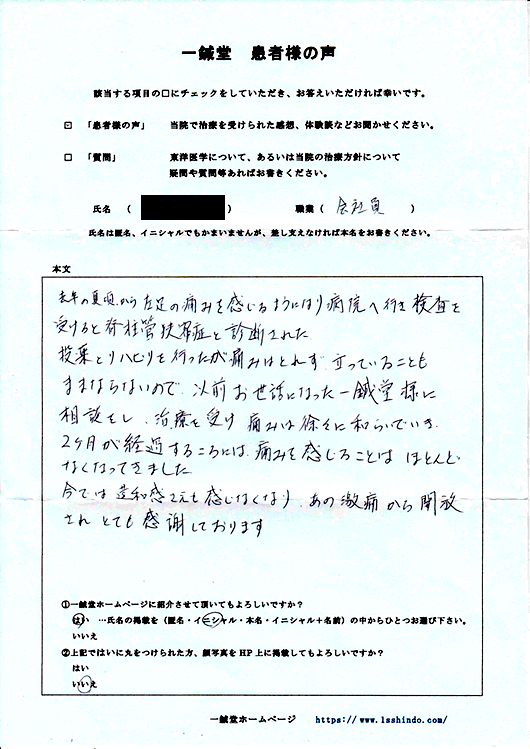 一鍼堂 患者様の声
該当する項目の□にチェックをしていただき、お答えいただければ幸いです。
☑ 「患者様の声」 当院で治療を受けられた感想、体験談などお聞かせください。
□ 「質問」 東洋医学について、あるいは当院の治療方針について
疑問や質問等あればお書きください。
氏名 ( ) 職業 ( 会社員 )
氏名は匿名、イニシャルでもかまいませんが、差し支えなければ本名をお書きください。
本文
去年の夏頃から左足の痛みを感じるようになり病院へ行き検査を
受けると脊柱管狭窄症と診断された
投薬とリハビリを行ったが痛みはとれず、立っていることも
ままならないので、以前お世話になった一鍼堂様に
相談をし、治療を受け 痛みは徐々に和らいでいき
2ヶ月が経過するころには、痛みを感じることは ほとんど
なくなってきました
今では違和感さえも感じなくなり、あの激痛から開放
され とても感謝しております
①一鍼堂ホームページに紹介させて頂いてもよろしいですか?
はい …氏名の掲載を(匿名・イニシャル・本名・イニシャル+名前)の中からひとつお選び下さい。
いいえ
②上記ではいに丸をつけられた方、顔写真をHP上に掲載してもよろしいですか?
はい
いいえ
一鍼堂ホームページ https://www.1sshindo.com/